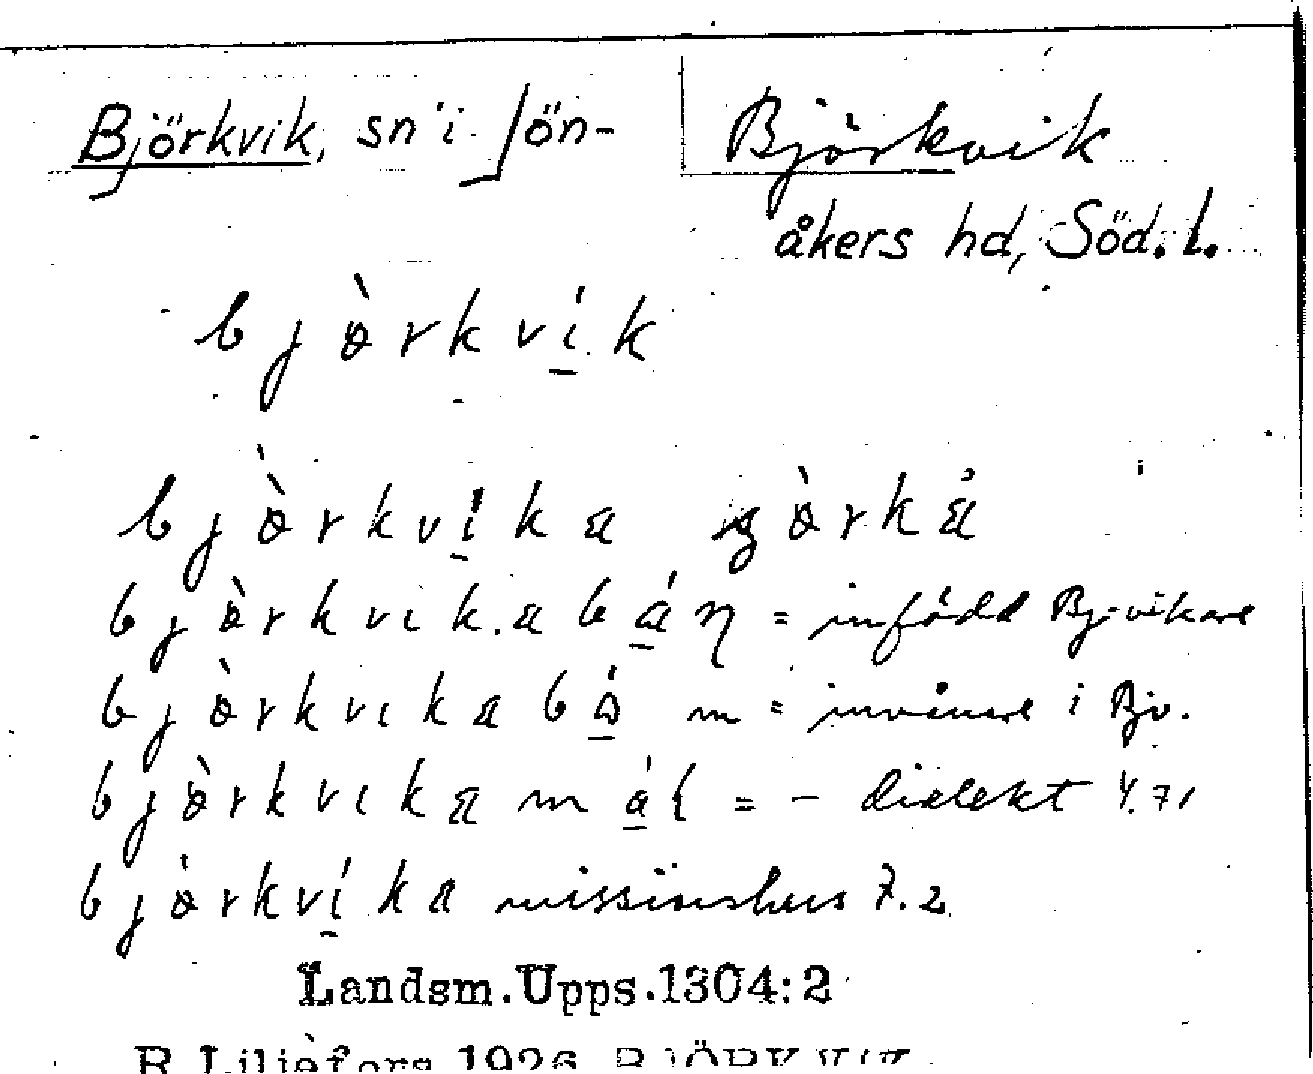 Björkvik, sn i Jön- Björkvik
åkers hd, Söd. l.
bjòrkvík
bjòrkvíka
bjòrkvika = infödd Bj-vikare
bjòrkvika m = invånare i Bjv.
bjòrkvika mál = - dialekt 4.71
bjòrkvíka missionshus 7.2
Landsm.Upps.1304:2
R Liljefors 1926 BJÖRKVIK